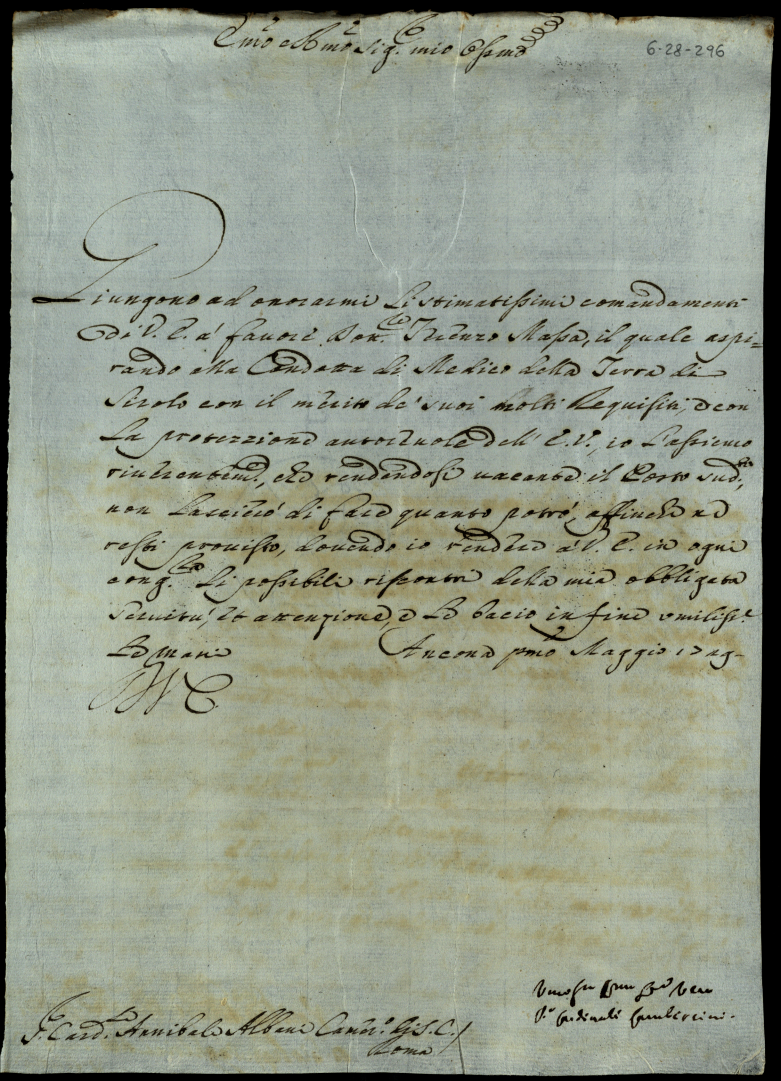 Em.o e Rm.o Sig.r mio Oss.mo
6-28-296
Giungono ad onorarmi li stimatissimi comandamenti
di V. E. à favore Dom.co Massa, il quale aspi=
rando alla Condotta di Medico della Terra di
Sirolo con il merito de' suoi molti Requisiti, e con
la protezzione autorevole dell' E. V., io l'assicuro
riverentem.e, che rendendosi vacante il Posto sud.to,
non lascierò di fare quanto potrò, affinche ne
resti provisto, dovendo io rendere à V. E. in ogni
cong.ra li possibili riscontri della mia obbligata
servitù, et attenzione, e le bacio in fine umiliss.e
le mani Ancona pmo Maggio 1729
S.r Card.le Annibale Albani Camer.o di S. C./
Roma